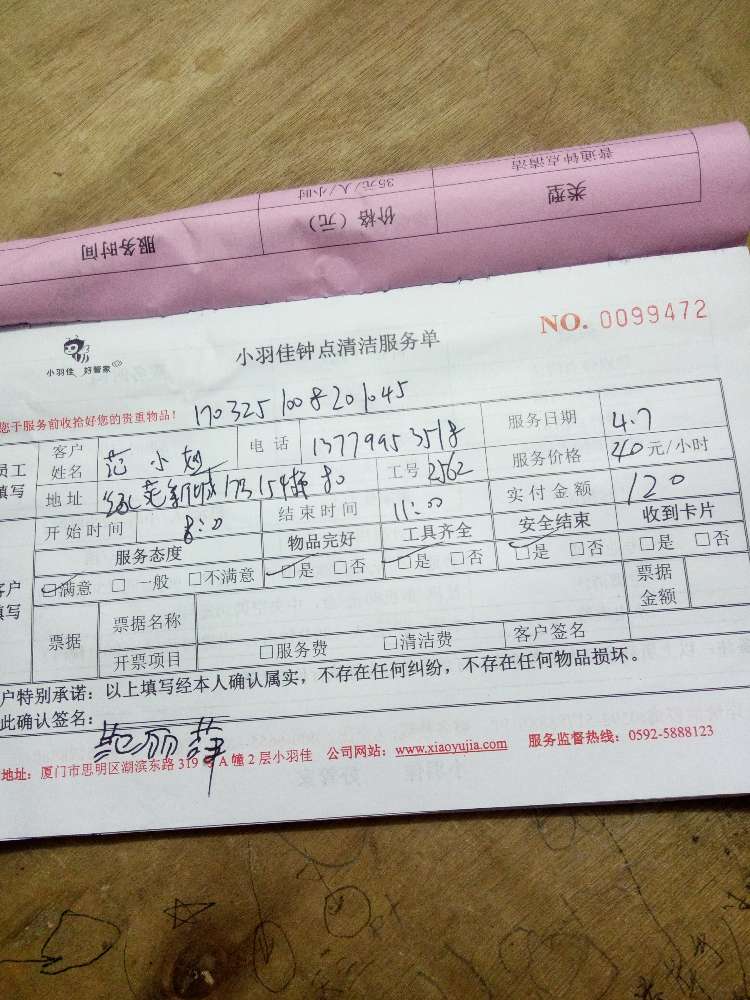 普通钟点清洁
35元/人/小时
类型
价格（元）
服务时间
NO. 0099472
小羽佳 好管家
小羽佳钟点清洁服务单
您于服务前收拾好您的贵重物品！ 1703251008201045
员工填写
客户姓名 范小 电话 13779953518 服务日期 4.7
地址 173 154 80 工号 2562 服务价格 40元/小时
开始时间 8:0 结束时间 11:00 实付金额 120
客户填写
服务态度 物品完好 工具齐全 安全结束 收到卡片
□满意 □一般 □不满意 □是 □否 □是 □否 □是 □否 □是 □否
票据 票据名称 票据金额
开票项目 □服务费 □清洁费 客户签名
户特别承诺：以上填写经本人确认属实，不存在任何纠纷，不存在任何物品损坏。
此确认签名：范丽萍
地址：厦门市思明区湖滨东路319号A幢2层小羽佳 公司网站：www.xiaoyujia.com 服务监督热线：0592-5888123